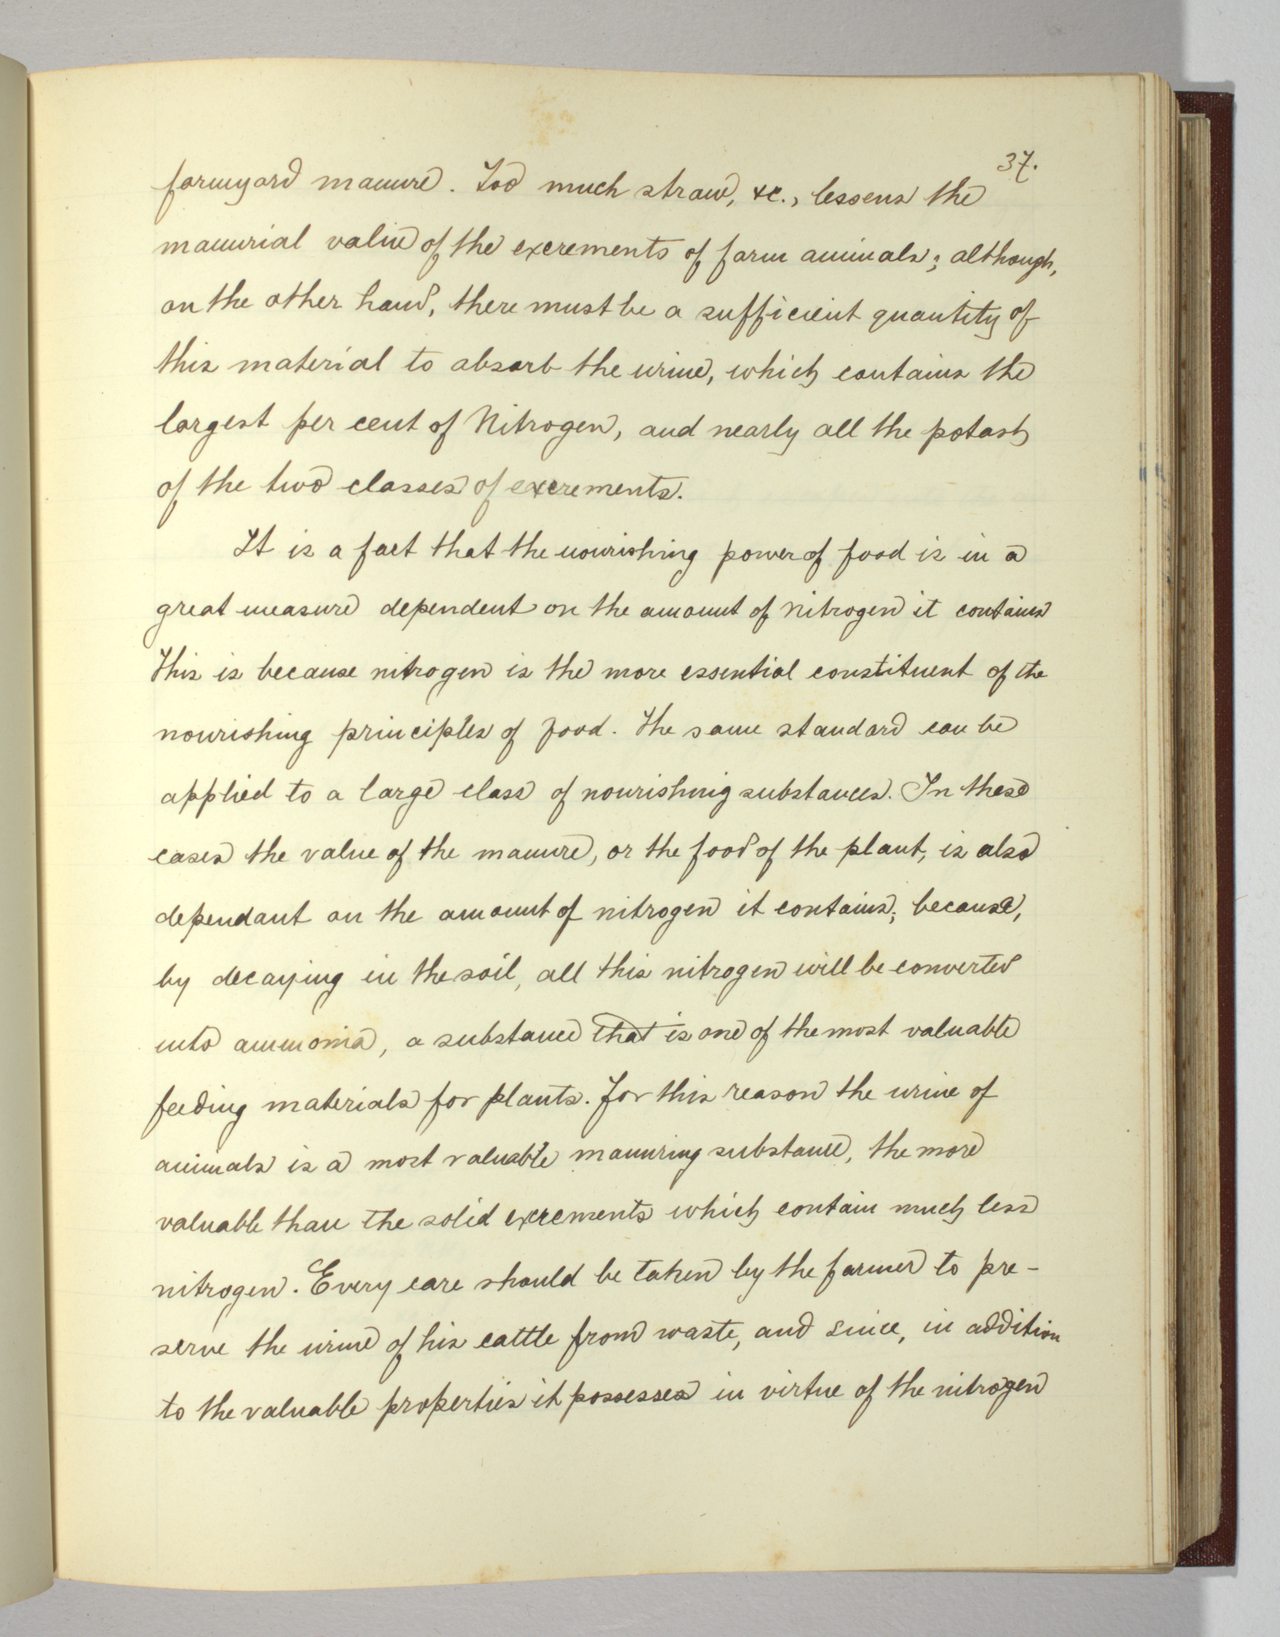 37.
farmyard manure. Too much straw, &c., lessens the
manurial value of the excrements of farm animals; although,
on the other hand, there must be a sufficient quantity of
this material to absorb the urine, which contains the
largest per cent of Nitrogen, and nearly all the potash
of the two classes of excrements.
It is a fact that the nourishing power of food is in a
great measure dependent on the amount of nitrogen it contains
This is because nitrogen is the more essential constituent of the
nourishing principles of food. The same standard can be
applied to a large class of nourishing substances. In these
cases the value of the manure, or the food of the plant, is also
dependant on the amount of nitrogen it contains; because,
by decaying in the soil, all this nitrogen will be converted
into ammonia, a substance that is one of the most valuable
feeding materials for plants. For this reason the urine of
animals is a most valuable manuring substance, the more
valuable than the solid excrements which contain much less
nitrogen. Every care should be taken by the farmer to pre-
serve the urine of his cattle from waste, and since, in addition
to the valuable properties it possesses in virtue of the nitrogen